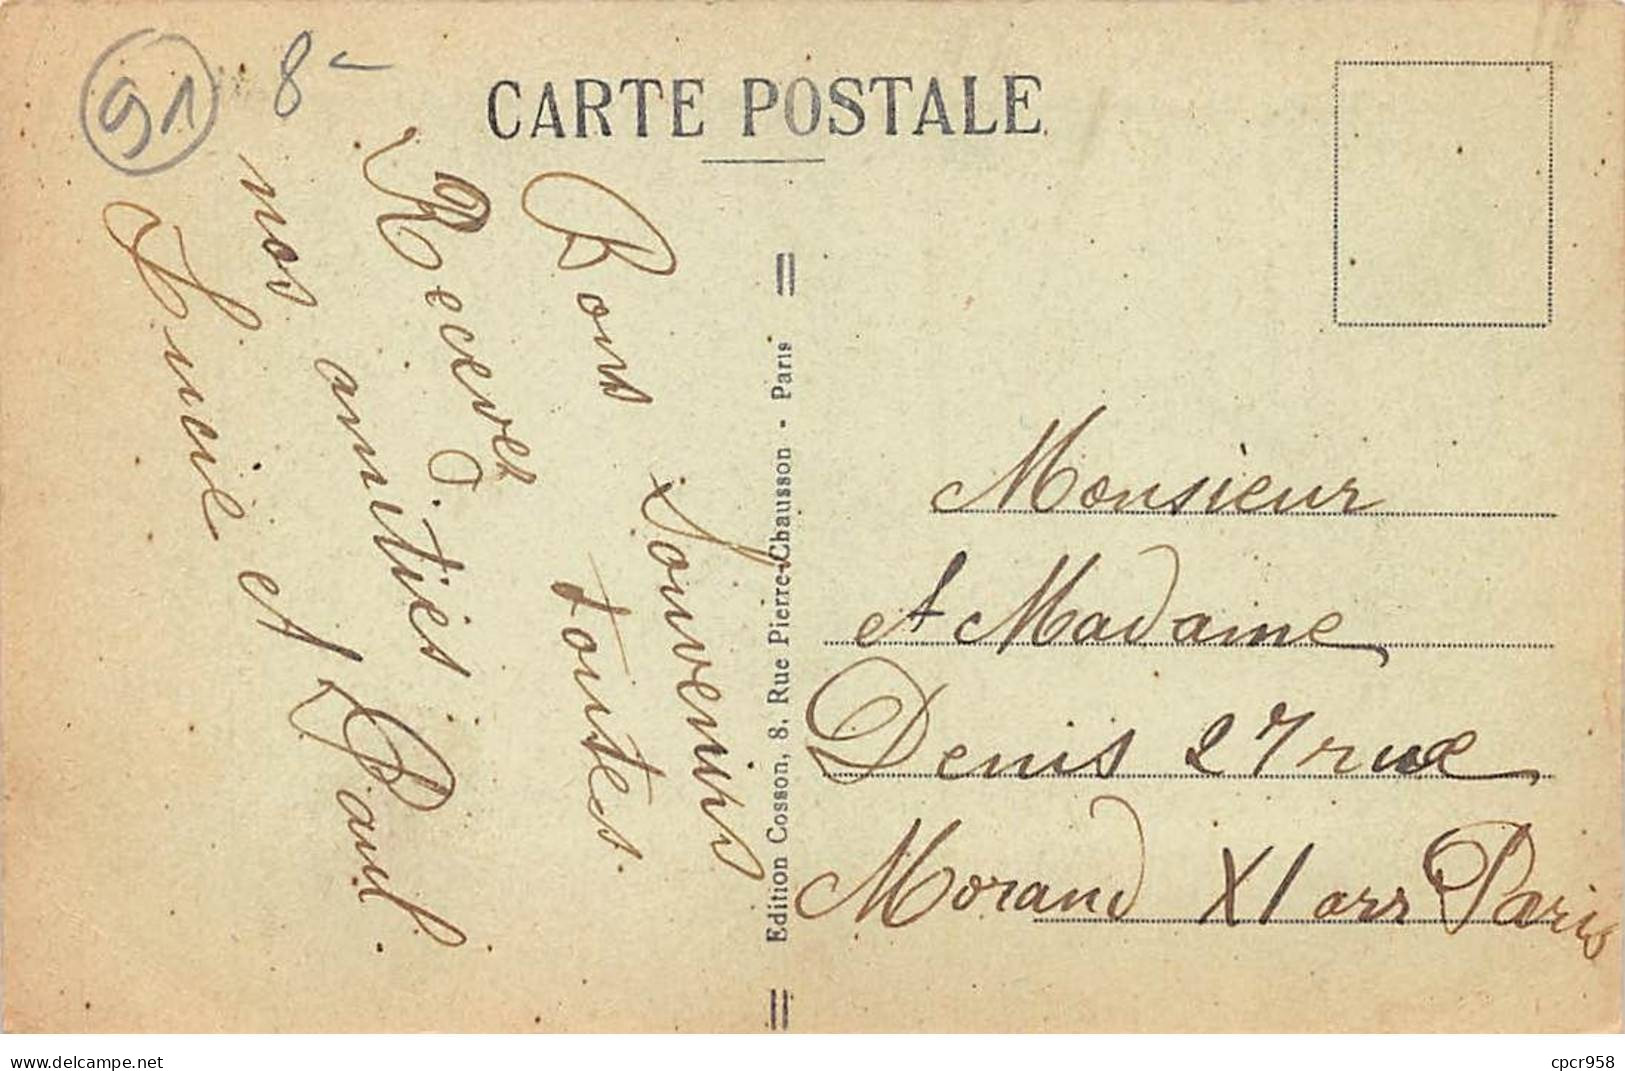 91
8
CARTE POSTALE
Bons Souvenirs
Recevez toutes
nos amitiés
Lucie et Paul
Edition Cosson, 8, Rue Pierre-Chausson - Paris
Monsieur
et Madame
Denis 27 rue
Morand XI arr Paris
delcampe.net
cpcr958